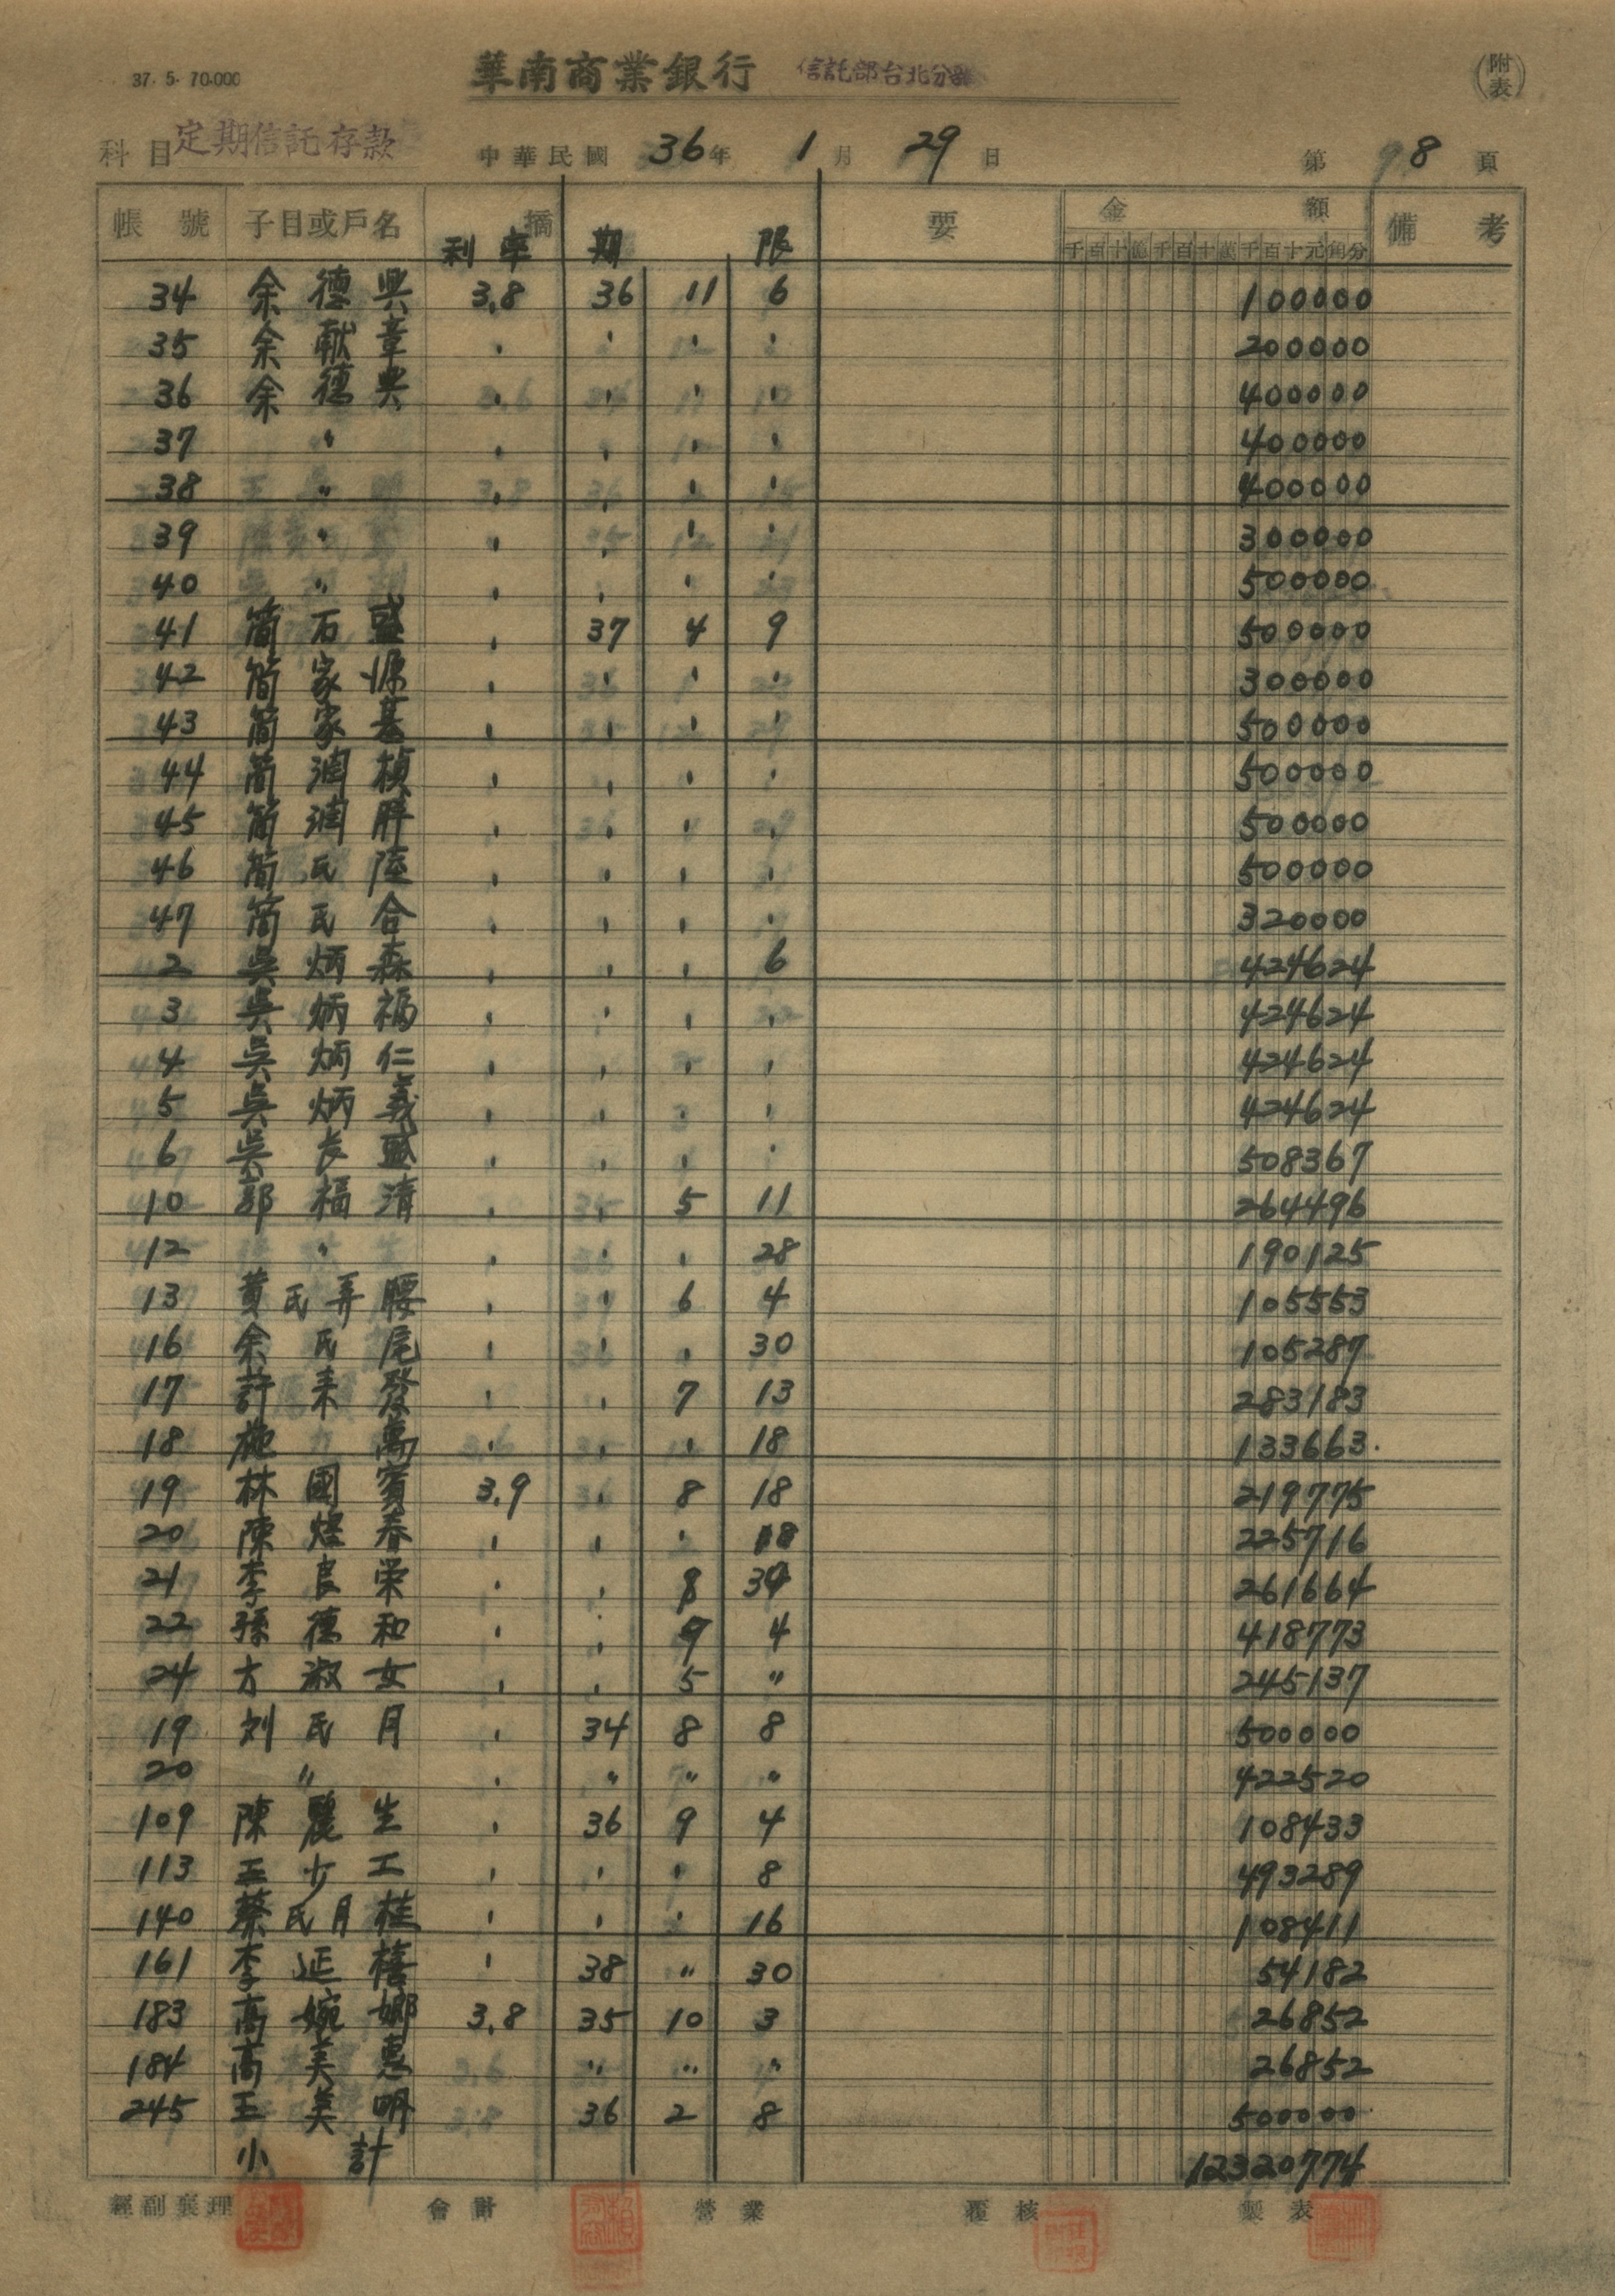 37. 5. 70.000
華南商業銀行 信託部台北分部
(附表)
科目 定期信託存款 中華民國 36年 1月 29日 第 98 頁
帳號 子目或戶名 摘 要 金額 備考
利率 期限 千百十億千百十萬千百十元角分
34 余德興 3.8 36 11 6 100000
35 余献章 , , , , 200000
36 余德興 , , , , 400000
37 〃 , , , , 400000
38 〃 , , , , 400000
39 〃 , , , , 300000
40 〃 , , , , 500000
41 簡石盛 , 37 4 9 500000
42 簡家源 , , , , 300000
43 簡家基 , , , , 500000
44 簡潤楨 , , , , 500000
45 簡潤胖 , , , , 500000
46 簡氏陸 , , , , 500000
47 簡氏合 , , , , 320000
2 吳炳森 , , , 6 424624
3 吳炳福 , , , , 424624
4 吳炳仁 , , , , 424624
5 吳炳義 , , , , 424624
6 吳長盛 , , , , 508367
10 郭福清 , , 5 11 264496
12 〃 , , , 28 190125
13 黄氏弄腰 , , 6 4 105553
16 余氏尾 , , , 30 105287
17 許来發 , , 7 13 283183
18 施萬 , , , 18 133663
19 林國賓 3.9 , 8 18 219775
20 陳煌春 , , , 18 225716
21 李良栄 , , 8 30 261664
22 孫德和 , , 9 4 418773
24 方淑女 , , 5 〃 245137
19 刘氏月 , 34 8 8 500000
20 〃 , 〃 〃 〃 422520
109 陳麗生 , 36 9 4 108433
113 王少工 , , , 8 493289
140 蔡氏月桂 , , , 16 108411
161 李延禧 , 38 〃 30 54182
183 高婉娜 3.8 35 10 3 26852
184 高美惠 〃 〃 〃 26852
245 王美明 36 2 8 500000
小計 12320774
經副襄理 會計 營業 覆核 製表